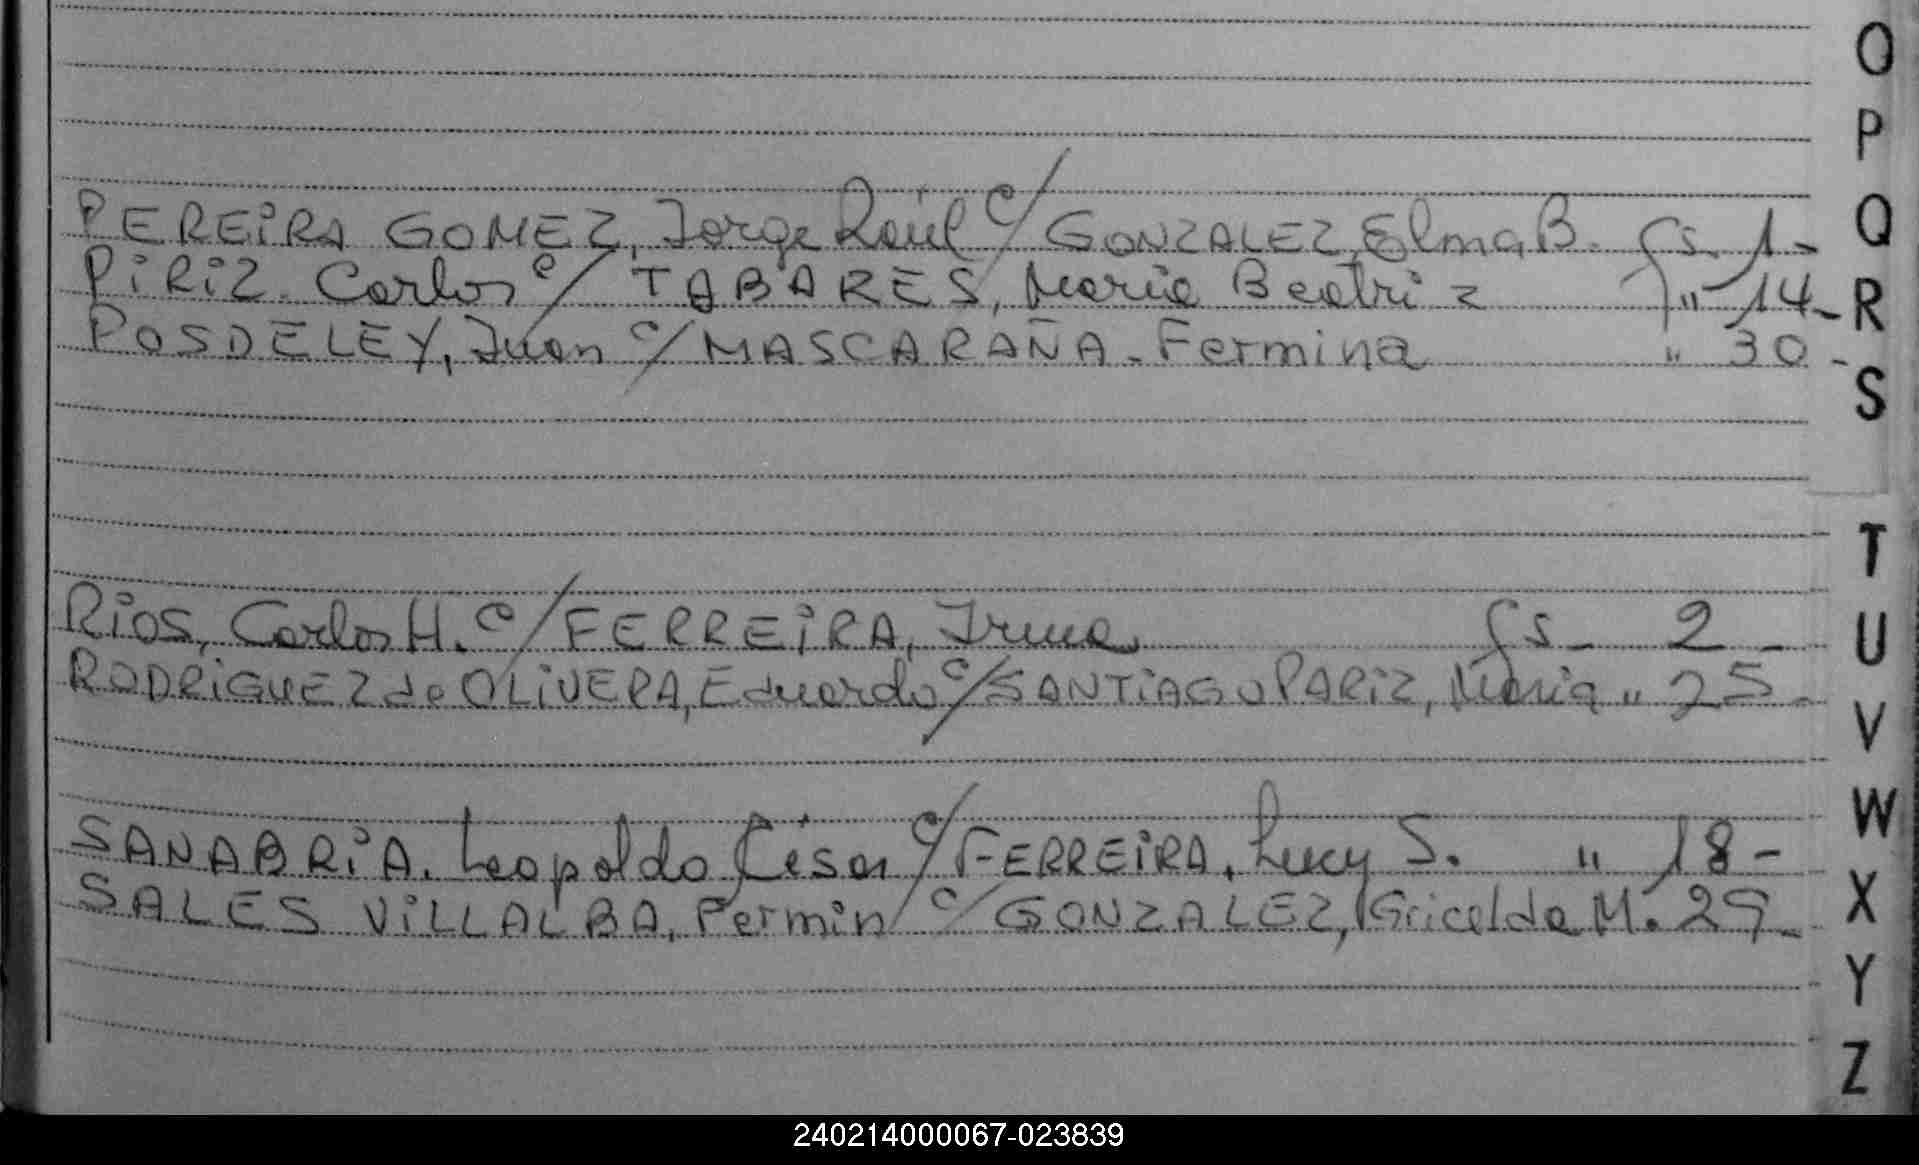 PEREiRA GOMEZ, Jorge Raúl c/ GONZALEZ, Elma B. fs. 1-
PiRiZ. Carlos c/ TABARES, María Beatriz " 14-
POSDELEY, Juan c/ MASCARAÑA - Fermina " 30-
RiOS, Carlos H. c/ FERREiRA, Irma fs- 2-
RODRiGUEZ de OLiVERA, Eduardo c/ SANTiAGO PARiZ, María " 25-
SANABRiA. Leopoldo César c/ FERREiRA, Lucy S. " 18-
SALES ViLLALBA, Fermin c/ GONZALEZ, Gricelda M. 29-
O
P
Q
R
S
T
U
V
W
X
Y
Z
240214000067-023839